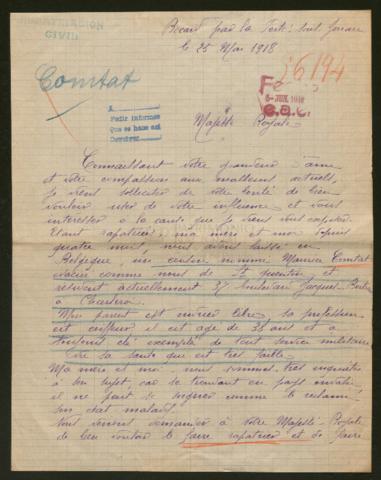 REPATRIACION
CIVIL
Becard par la Ferté sous Jouarre
le 25 Mai 1918
Comtat
36194
5-JUIL 1918
A
Pedir informes
Que se hace asi
Contestar
Majesté
Royale.
Connaissant votre grandeur d'âme
et votre compassion aux malheurs actuels,
je viens solliciter de votre bonté de bien
vouloir user de votre influence et vous
interesser à la cause que je viens vous exposer.
Etant rapatriées, ma mère et moi depuis
quatre mois, nous avons laissé en
Belgique, un cousin nommé Maurice Comtat
évacué comme nous de St Quentin et
restant actuellement 37 boulevard Jacques
à Charleroi.
Mon parent est civil libre, sa profession
est coiffeur il est agé de 38 ans et a
toujours été exempté de tout service militaire
vu sa santé qui est très faible.
Ma mère et moi nous sommes très inquiètes
à son sujet, car se trouvant en pays envahi
il ne peut se soigner comme le réclame
son état maladif.
Nous venons demander à votre Majesté Royale
de bien vouloir le faire rapatrier et de faire